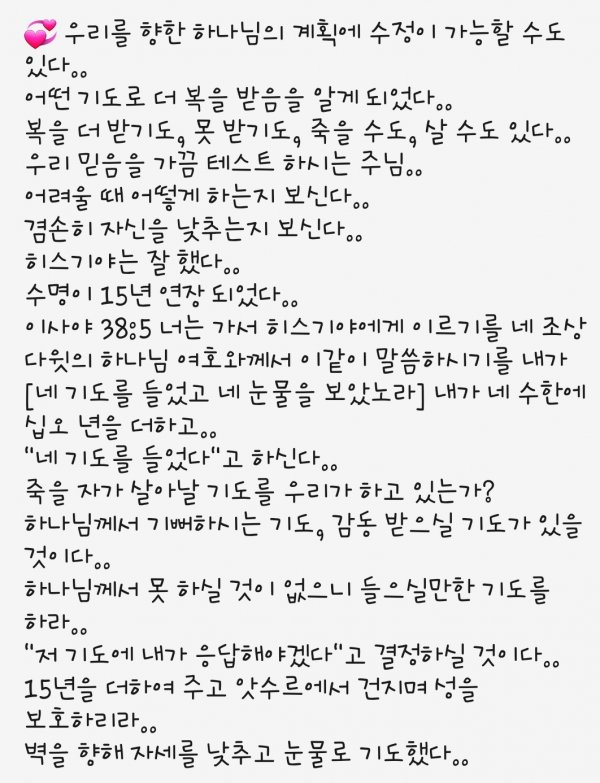 💞 우리를 향한 하나님의 계획에 수정이 가능할 수도
있다..
어떤 기도로 더 복을 받음을 알게 되었다..
복을 더 받기도, 못 받기도, 죽을 수도, 살 수도 있다..
우리 믿음을 가끔 테스트 하시는 주님..
어려울 때 어떻게 하는지 보신다..
겸손히 자신을 낮추는지 보신다..
히스기야는 잘 했다..
수명이 15년 연장 되었다..
이사야 38:5 너는 가서 히스기야에게 이르기를 네 조상
다윗의 하나님 여호와께서 이같이 말씀하시기를 내가
[네 기도를 들었고 네 눈물을 보았노라] 내가 네 수한에
십오 년을 더하고..
"네 기도를 들었다"고 하신다..
죽을 자가 살아날 기도를 우리가 하고 있는가?
하나님께서 기뻐하시는 기도, 감동 받으실 기도가 있을
것이다..
하나님께서 못 하실 것이 없으니 들으실만한 기도를
하라..
"저 기도에 내가 응답해야겠다"고 결정하실 것이다..
15년을 더하여 주고 앗수르에서 건지며 성을
보호하리라..
벽을 향해 자세를 낮추고 눈물로 기도했다..